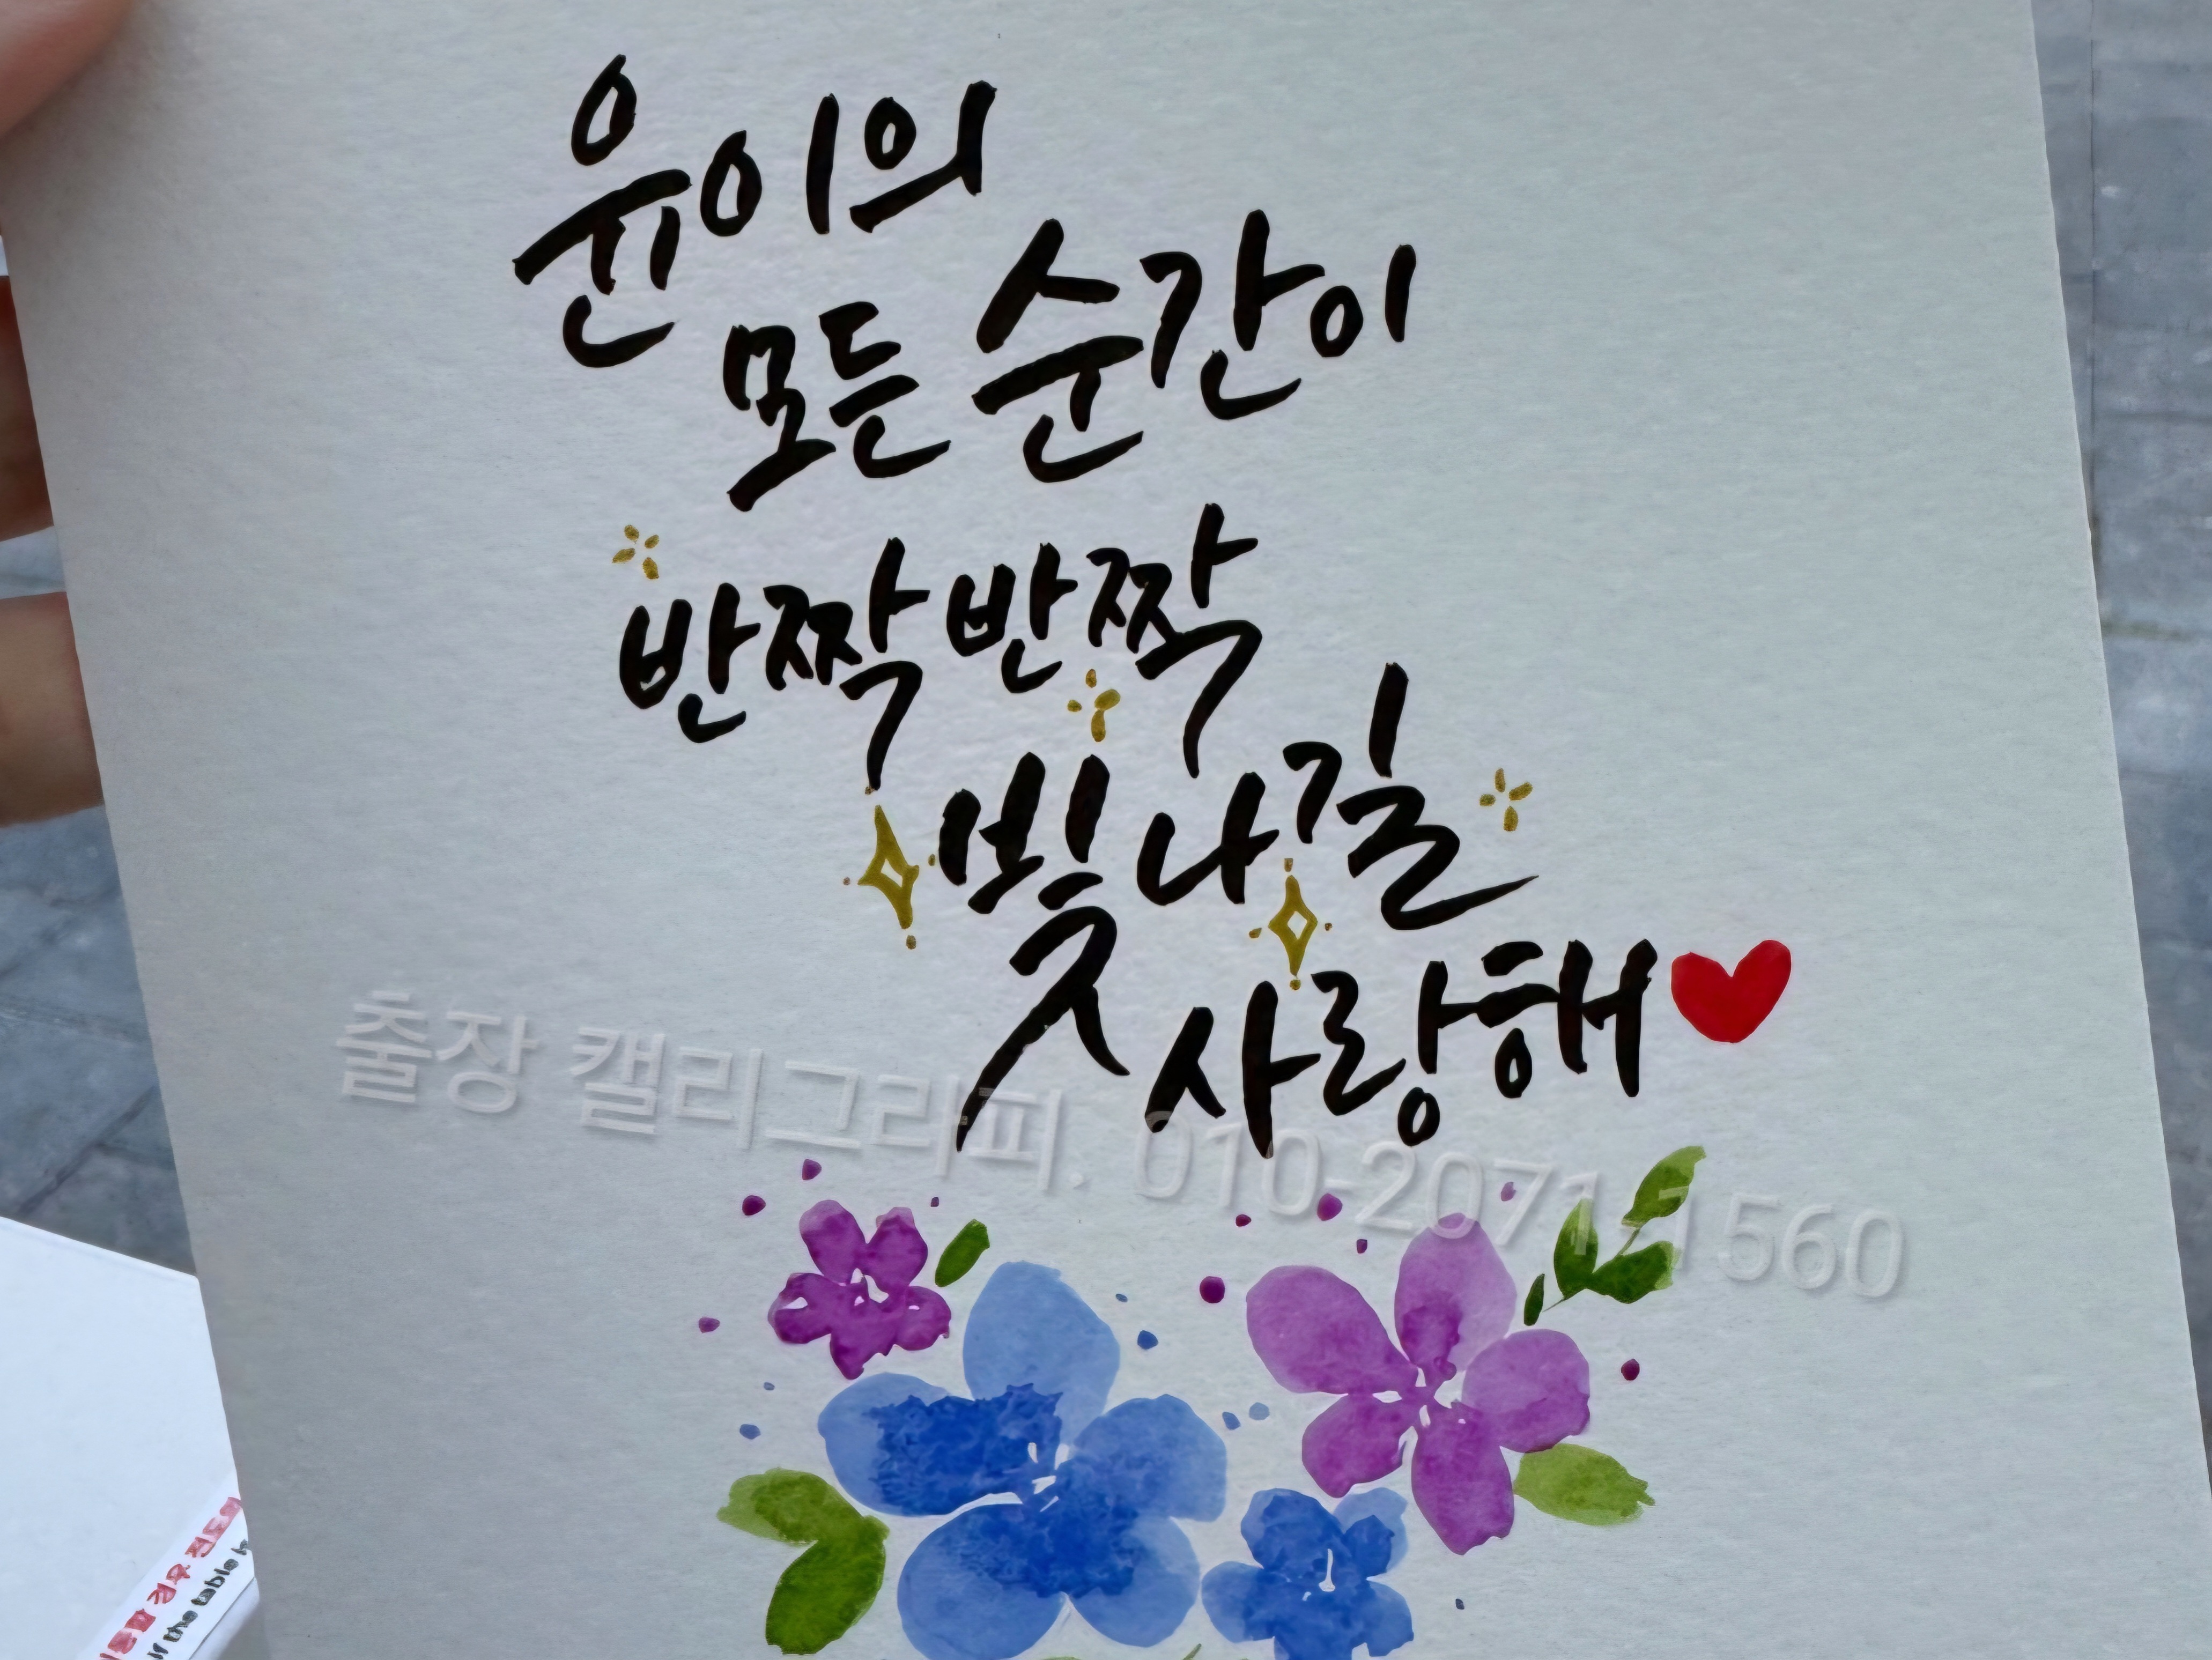 윤이의
모든 순간이
반짝반짝
빛나길
사랑해
출장 캘리그라피. 010-2071-1560
the table